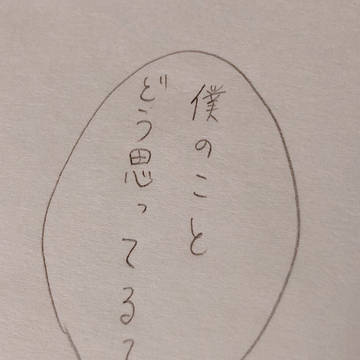 僕のこと
どう思ってる